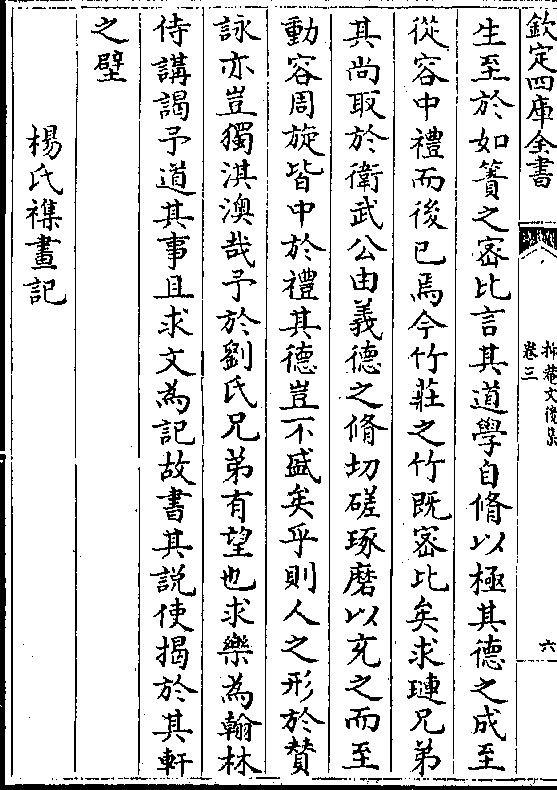 欽定四庫全書
抑菴文後集
卷三
六
生至於如簀之密比言其道學自脩以極其德之成至
從容中禮而後已焉今竹莊之竹既密比矣求璉兄弟
其尚取於衛武公由義德之脩切磋琢磨以充之而至
動容周旋皆中於禮其德豈不盛矣乎則人之形於賛
詠亦豈獨淇澳哉予於劉氏兄弟有望也求樂為翰林
侍講謁予道其事且求文為記故書其説使揭於其軒
之壁
楊氏襍畫記